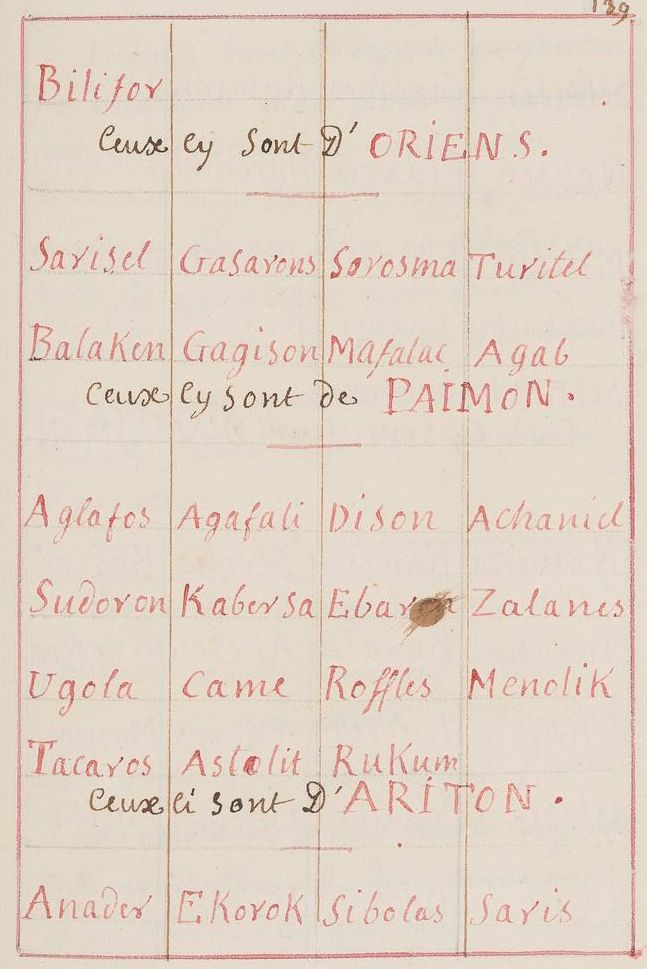 139
Bilifor
Ceux Cy Sont D' ORIENS.
Sarisel Gasarons Sorosma Turitel
Balaken Gagison Mafalac Agab
Ceux Cy sont de PAÏMON.
Aglafos Agafali Dison Achaniel
Sudoron Kabersa Zalanes
Ugola Came Roffles Menolik
Tacaros Astolit Rukum
Ceux Ci sont D' ARITON.
Anader Ekorok Sibolas Saris